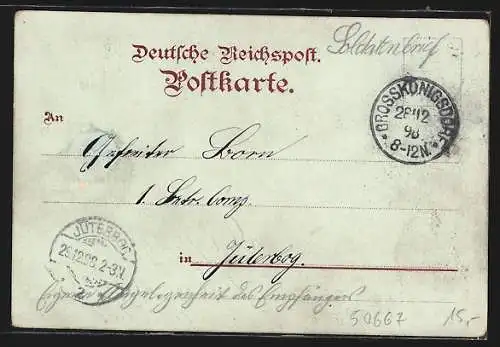 Soldatenbrief
Deutsche Reichspost.
Postkarte.
GROSSKÖNIGSDORF
28 12
98
8-12N.
An
Gefreiter Born
1. Batr. Comp.
JÜTERBOG
29.12.98. 2-3.V.
in Jüterbog.
Eigene Angelegenheit des Empfängers
50667 15,-